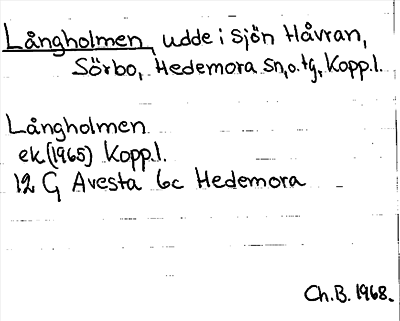 Långholmen, udde i sjön Håvran,
Sörbo, Hedemora sn,o.tg, Kopp.l.
Långholmen
ek.(1965) Kopp.l.
12 G Avesta 6c Hedemora
Ch.B. 1968.